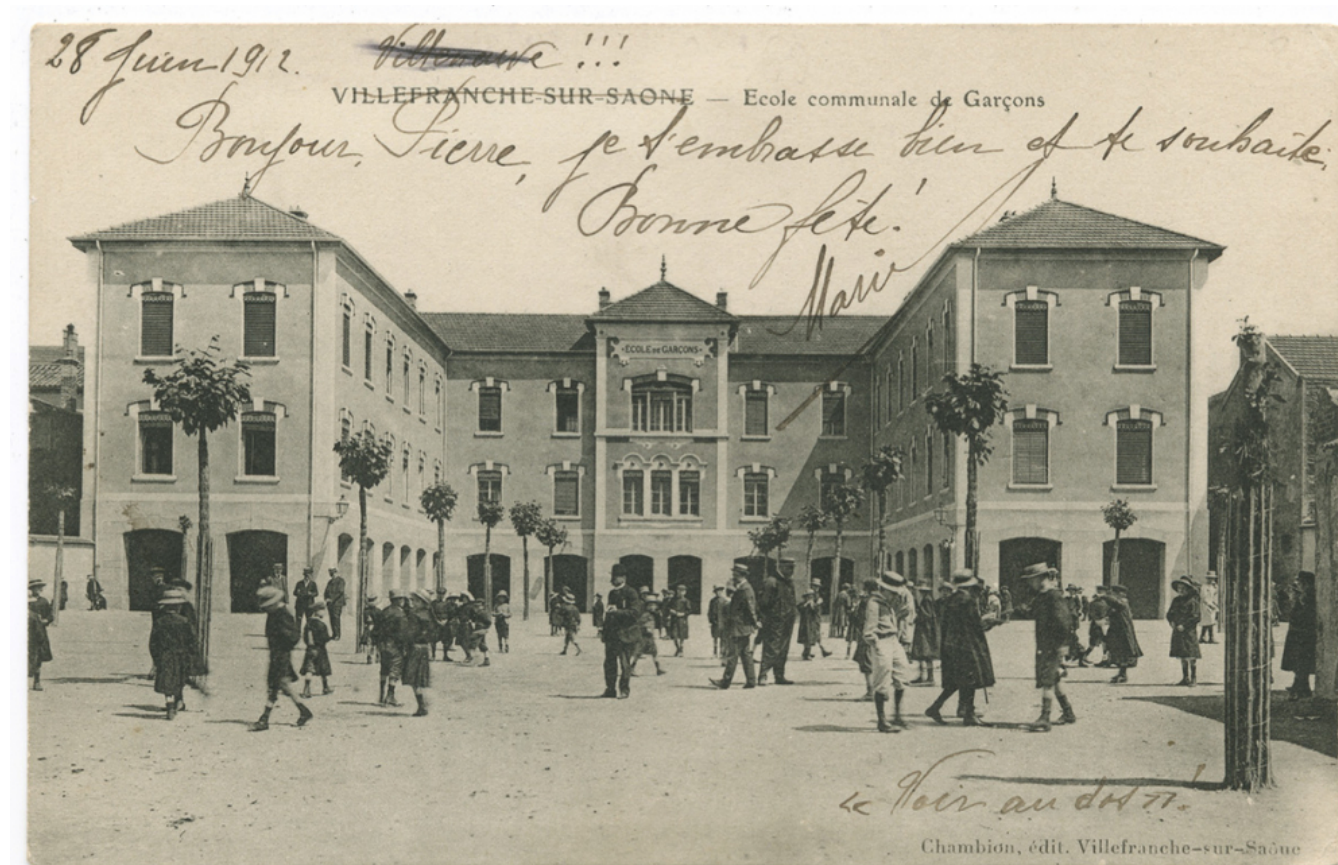 28 Juin 1912. Villeneuve !!!
VILLEFRANCHE-SUR-SAONE — Ecole communale de Garçons
Bonjour, Pierre, je t'embrasse bien et te souhaite,
Bonne fête!
Marie
ECOLE DE GARÇONS
« Voir au dos ».
Chambion, édit. Villefranche-sur-Saône